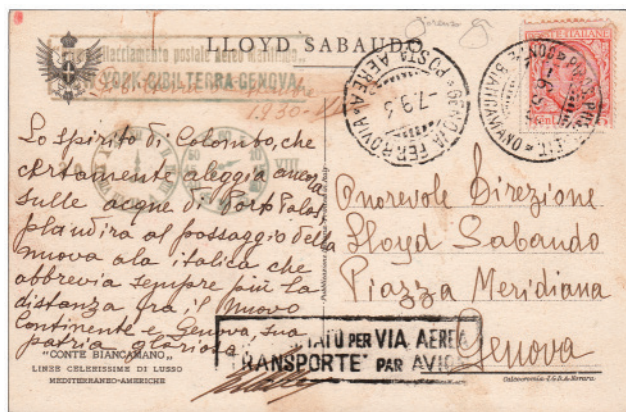 LLOYD SABAUDO
allacciamento postale aereo marittimo
YORK-GIBILTERRA-GENOVA
1930-VIII
Lo spirito di Colombo, che
certamente aleggia ancora
sulle acque di Porto Palos,
plaudirà al passaggio della
nuova ala italica che
abbrevia sempre più la
distanza fra il Nuovo
Continente e Genova, sua
patria gloriosa
"CONTE BIANCAMANO"
LINEE CELERISSIME DI LUSSO
MEDITERRANEO-AMERICHE
GENOVA FERROVIA
POSTA AEREA
-7.9.3
POSTE ITALIANE
CONTE BIANCAMANO
Onorevole Direzione
Lloyd Sabaudo
Piazza Meridiana
Genova
TATO PER VIA AEREA
TRANSPORTÉ PAR AVIO